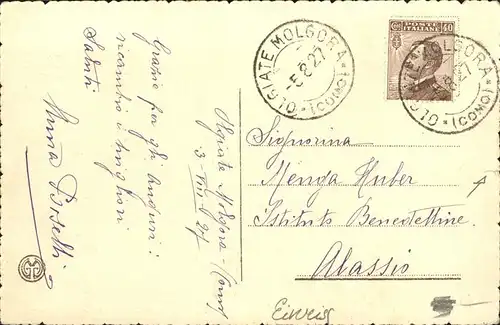 Grazie per gli auguri!
ricambio i migliori
Saluti
Anna
Olgiate Molgora (Como)
3-VIII-27
OLGIATE MOLGORA
-5.8.27
(COMO)
POSTE ITALIANE
40
OLGIATE MOLGORA
(COMO)
Signorina
Menga Huber
Istituto Benedettine
Alassio